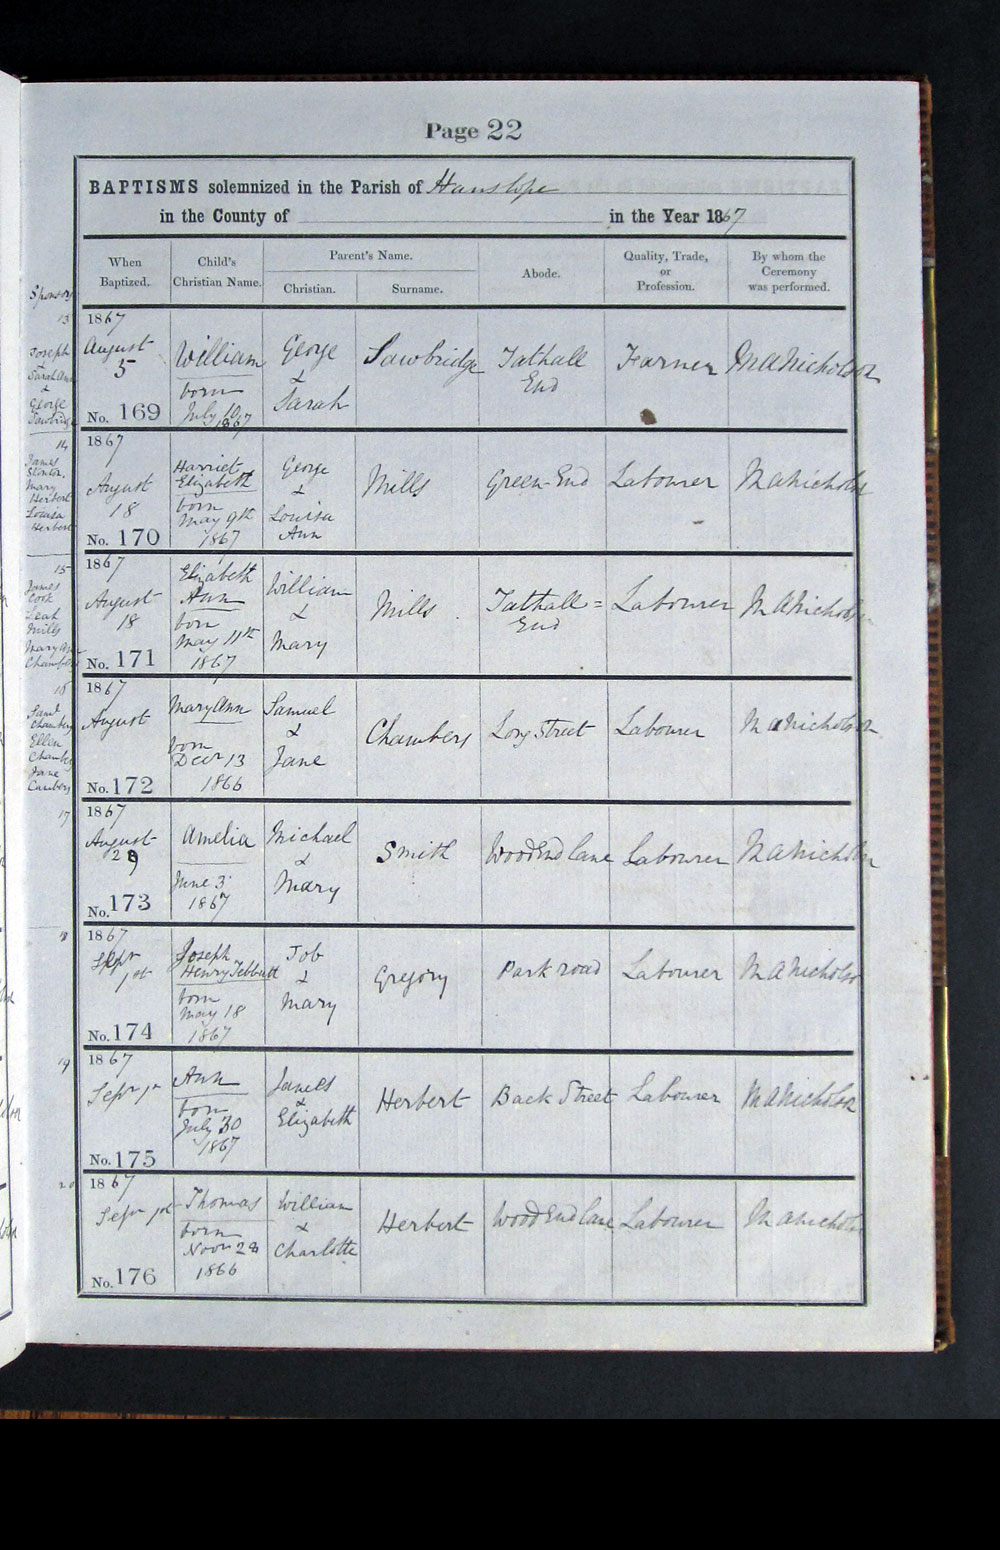 Page 22
BAPTISMS solemnized in the Parish of Hanslope
in the County of in the Year 1867
When Baptized.
Child's Christian Name.
Parent's Name.
Christian.
Surname.
Abode.
Quality, Trade, or Profession.
By whom the Ceremony was performed.
Sponsors
13
Joseph
&
Sarah Ann
&
George
Sawbridge
1867
August
5
No. 169
William
born
July 10
1867
George
&
Sarah
Sawbridge
Tathall
End
Farmer
M A Nicholson
14
James
Stenton.
Mary
Herbert
Louisa
Herbert
1867
August
18
No. 170
Harriet
Elizabeth
born
May 9th
1867
George
&
Louisa
Ann
Mills
Green-End
Labourer
M A Nicholson
15
James
Cook
Leah
Mills
Mary Ann
Chambers
1867
August
18
No. 171
Elizabeth
Ann
born
May 11th
1867
William
&
Mary
Mills
Tathall=
End
Labourer
M A Nicholson
16
Saml
Chambers
Ellen
Chambers
Jane
Cambers
1867
August
No. 172
Mary Ann
born
Decr 13
1866
Samuel
&
Jane
Chambers
Long Street
Labourer
M A Nicholson
17
1867
August
29
No. 173
Amelia
June 3
1867
Michael
&
Mary
Smith
Wood End lane
Labourer
M A Nicholson
18
1867
Sepr
1st
No. 174
Joseph
Henry Tebbutt
born
May 18
1867
Job
&
Mary
Gregory
Park road
Labourer
M A Nicholson
19
1867
Sepr 1st
No. 175
Ann
born
July 30
1867
James
&
Elizabeth
Herbert
Back Street
Labourer
M A Nicholson
20
1867
Sepr 1st
No. 176
Thomas
born
Novr 28
1866
William
&
Charlotte
Herbert
Wood End lane
Labourer
M A Nicholson